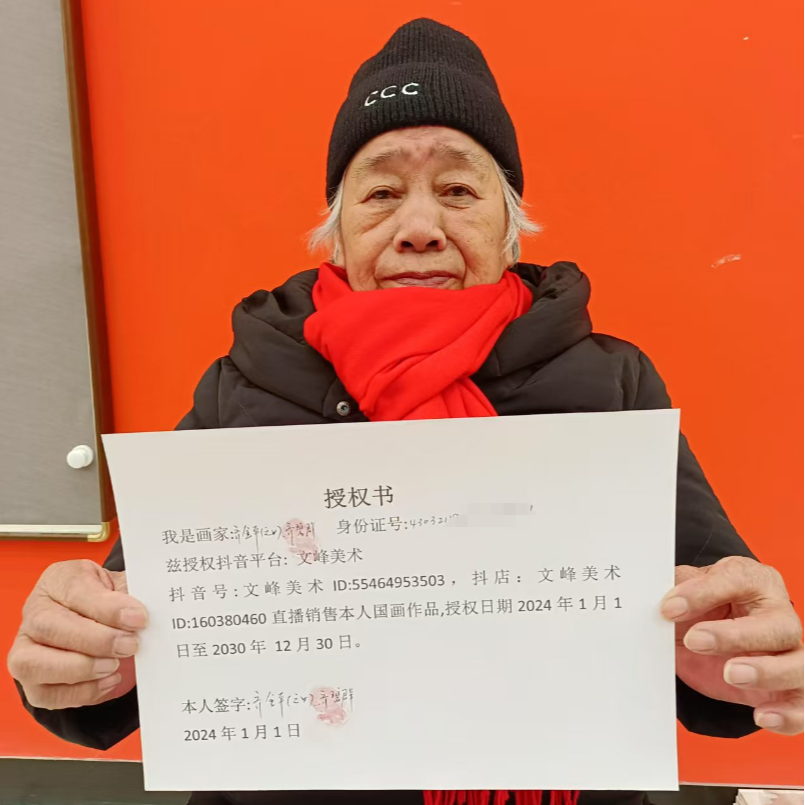 CCC
授权书
我是画家: 身份证号:430321
兹授权抖音平台: 文峰美术
抖音号:文峰美术 ID:55464953503，抖店：文峰美术
ID:160380460直播销售本人国画作品,授权日期2024年1月1
日至2030年 12月30日。
本人签字:
2024年1月1日